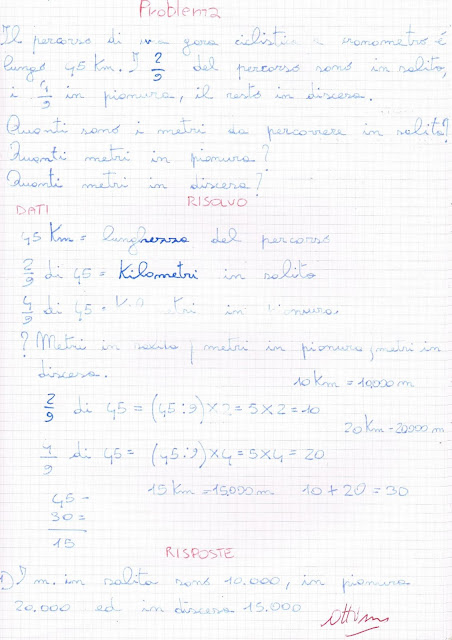 Problema
Il percorso di una gara ciclistica a cronometro è
lungo 45 Km. I 2/9 del percorso sono in salita,
i 4/9 in pianura, il resto in discesa.
Quanti sono i metri da percorrere in salita?
Quanti metri in pianura?
Quanti metri in discesa?
DATI RISOLVO
45 Km = lunghezza del percorso
2/9 di 45 = Kilometri in salita
4/9 di 45 = Kilometri in pianura
? Metri in salita, metri in pianura, metri in
discesa.
10 Km = 10,000 m
2/9 di 45 = (45:9)×2=5×2=10
20 Km = 20,000 m
4/9 di 45 = (45:9)×4=5×4=20
15 Km = 15,000 m 10+20=30
45 -
30 =
15
RISPOSTE
1) I m. in salita sono 10.000, in pianura
20.000 ed in discesa 15.000